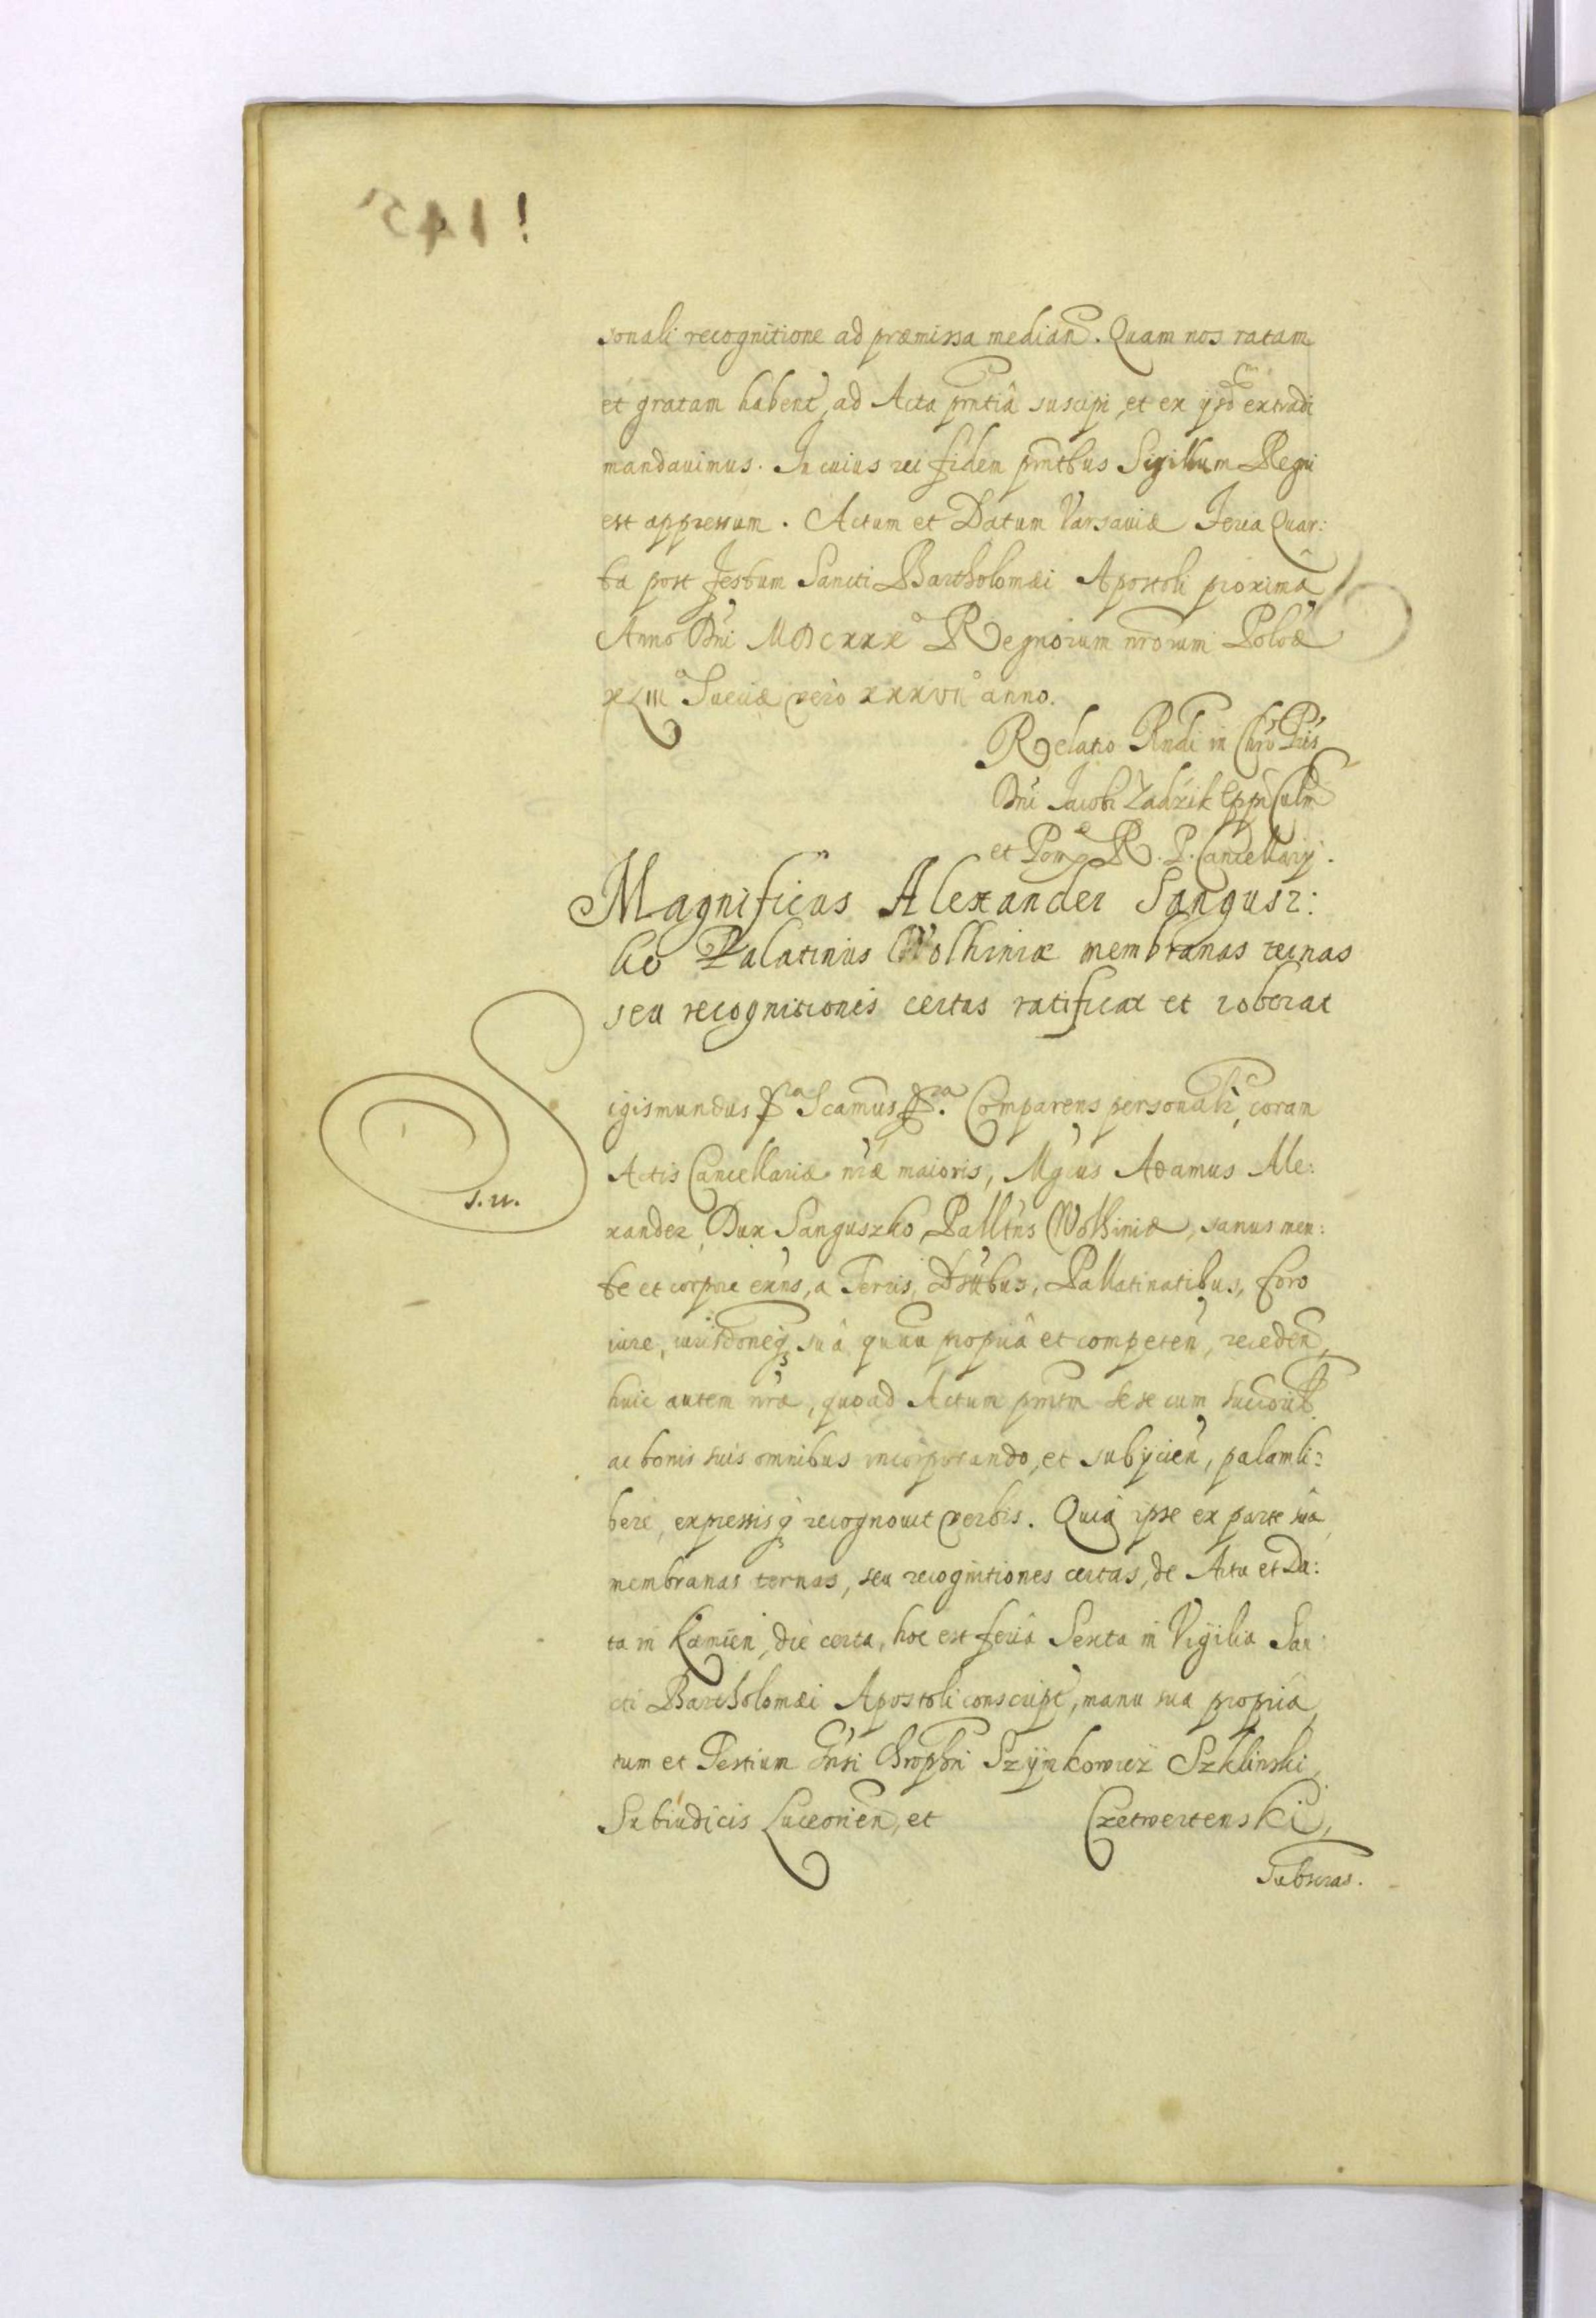 sonali recognitione ad præmissa median. Quam nos ratam
et gratam haben̄t, ad Acta prn̄tiâ suscipi, et ex ijsd extradi
mandauimus. In cuius rei fidem prn̄tbus Sigillum Regni
est appressum. Actum et Datum Varsauiæ Feria Quar:
ta post Festum Sancti Bartholomæi Apostoli proximâ
Anno Dn̄i MDCXXXº Regnorum nr̄orum Polōæ
XLIIIº Sueciæ vero XXXVIIº anno.
Relatio Rndi in Chr̄o Pr̄is
Dn̄i Jacobi Zadzik Epp̄i Culm̄
et Pom̄ R. P. Cancellarij.
Magnificus Alexander Sangusz:
ko Palatinus Wolhiniæ membranas ternas
seu recognitionis certas ratificat et roborat
S
igismundus pra Scamus pra. Comparens personalr̄, coram
Actis Cancellariæ nr̄æ maioris, Mgcus Adamus Ale:
s. n.
xander, Dux Sanguszko, Palltn̄s Wolhiniæ, sanus men:
te et corpore exn̄s, a Terris, Dttibus, Pallatinatibus, foro
iure, iurisdoneq̄ suâ quauu propriâ et competen̄, receden̄,
huic autem nr̄æ, quoad Actum prn̄tm sese cum succorib
ac bonis suis omnibus incorporando, et subijcien̄, palam li:
bere, expressisq̄ recognouit verbis. Quia ipse ex parte sua
membranas ternas, seu recognitiones certas, de Actu et Da:
ta in Kamien̄, die certa, hoc est feria Sexta in Vigilia San:
cti Bartholomæi Apostoli conscript̄, manu sua propria
tum et Testium Gn̄si Chrophri Szijmkowicz Szklinski,
Subiudicis Luceorien̄, et Czetwertenski,
Subscras.